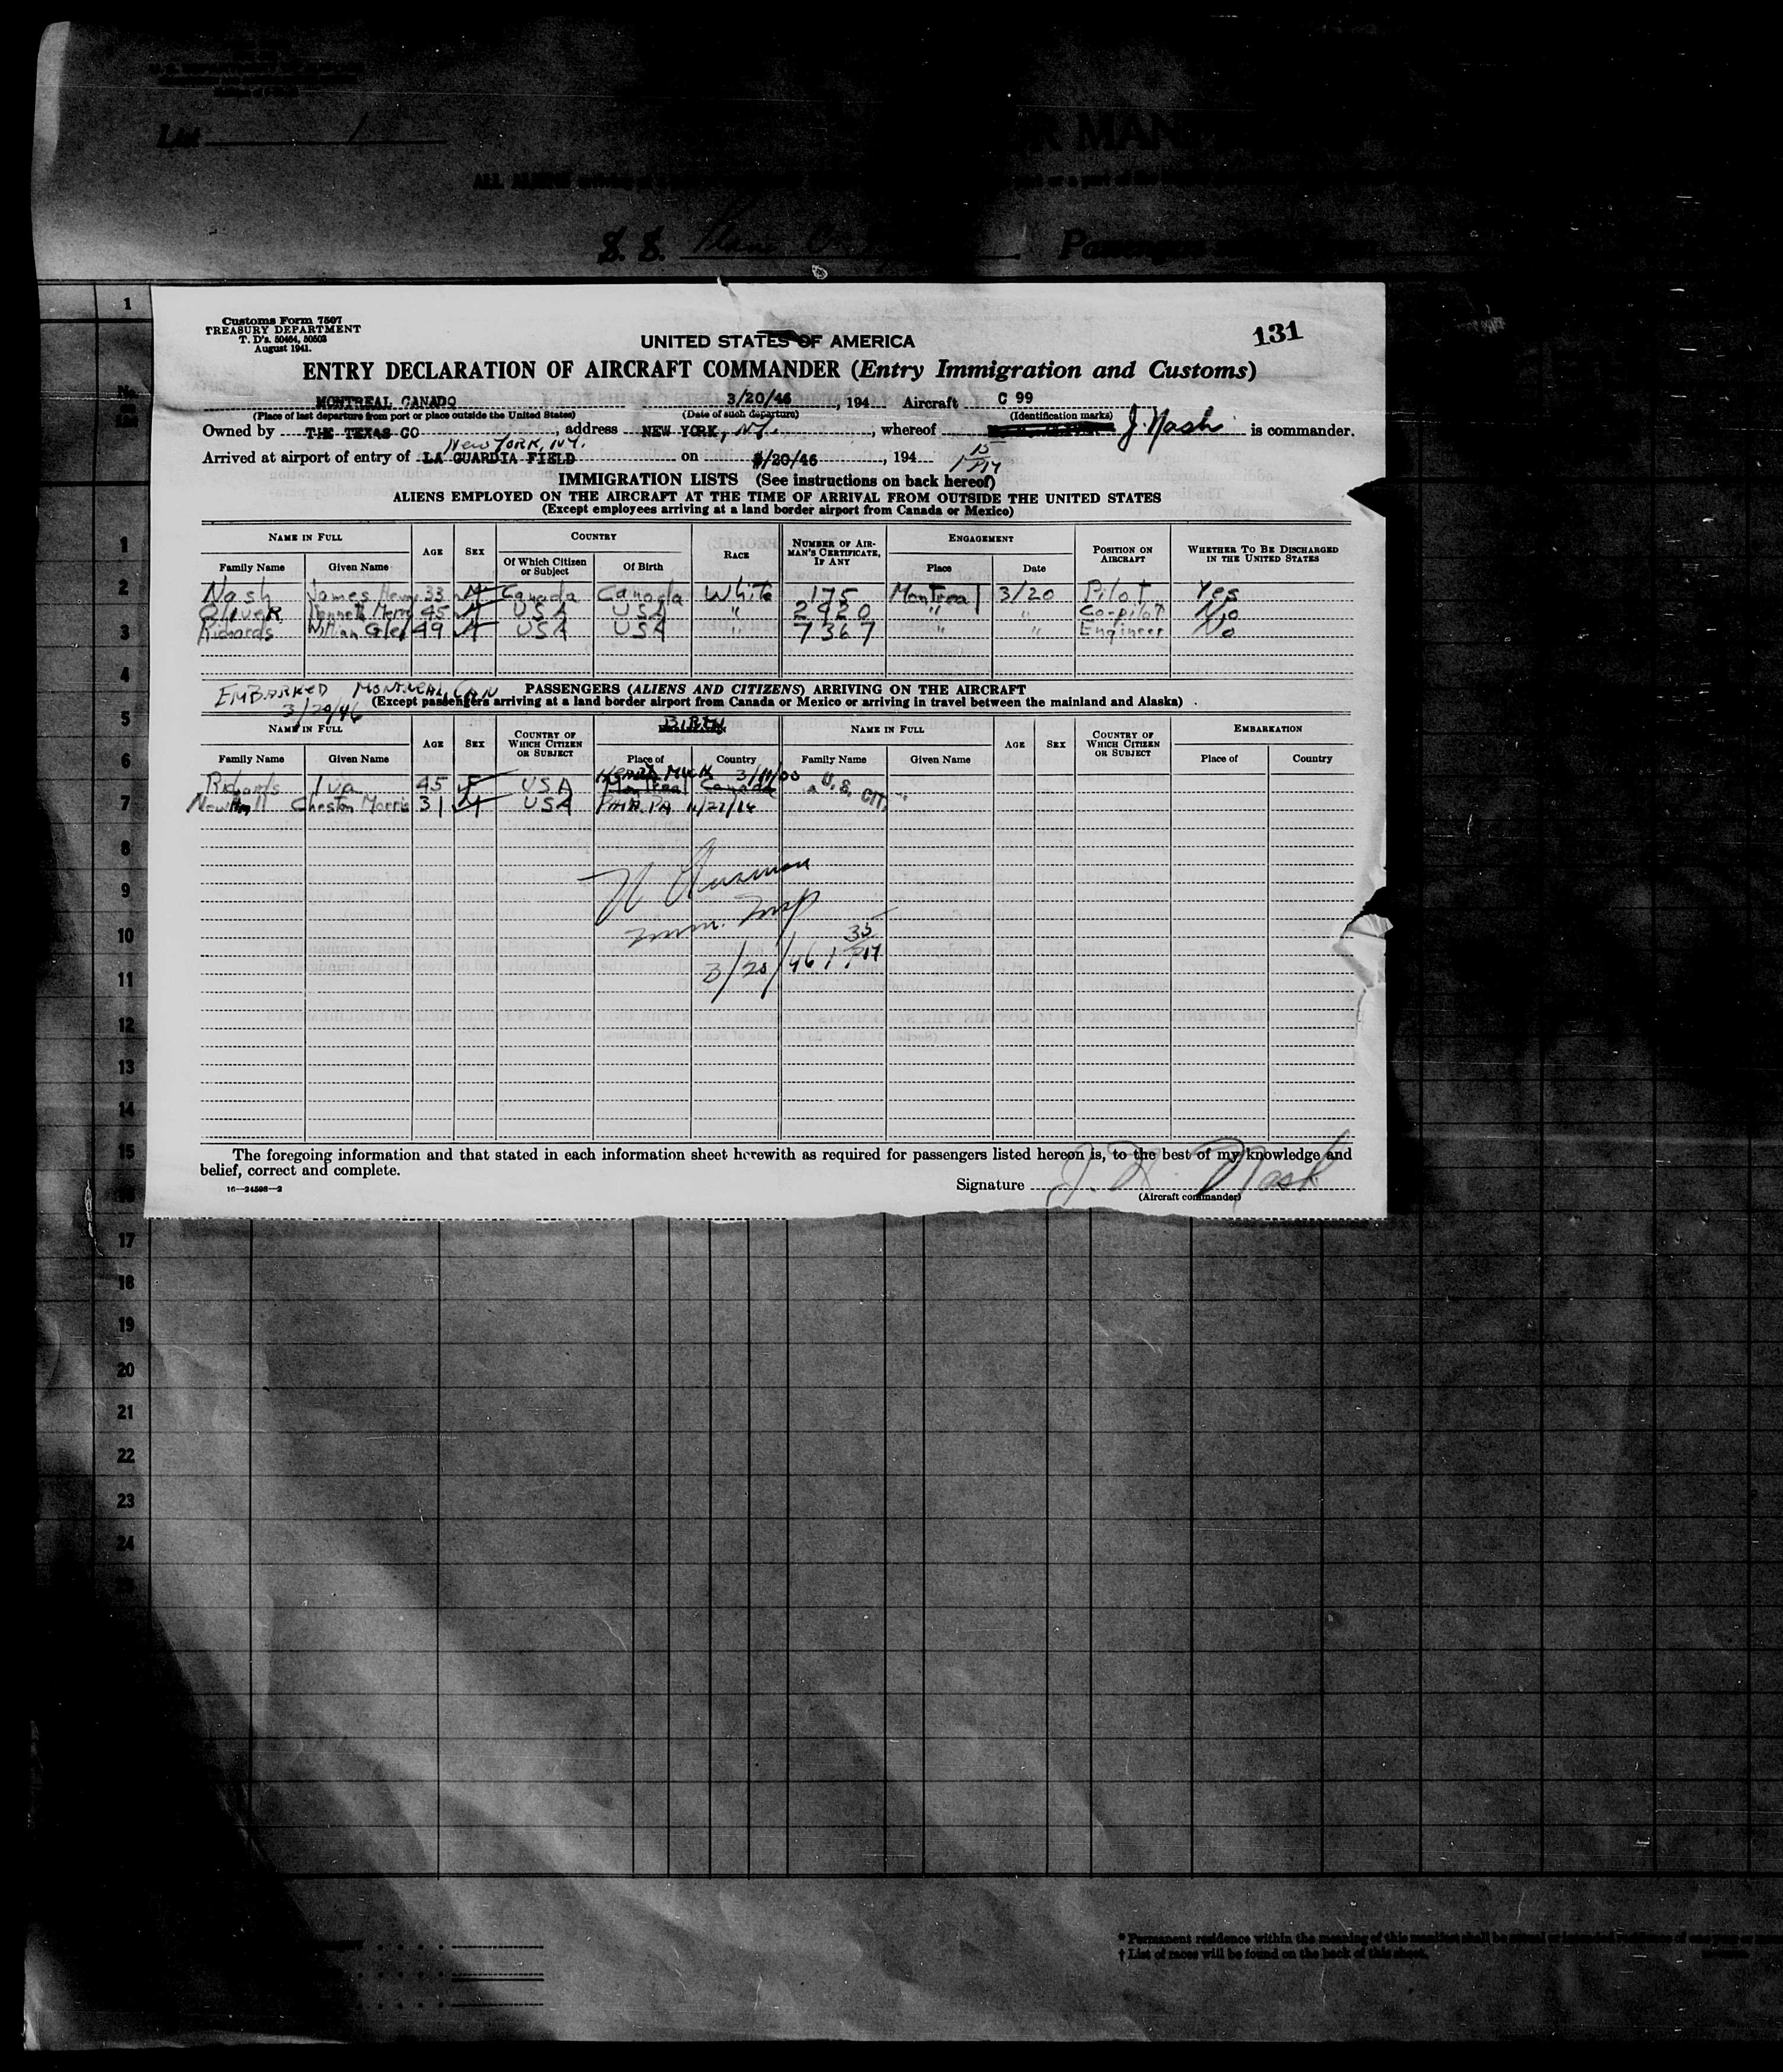 List 1
S. S. Plane
1
Customs Form 7507
TREASURY DEPARTMENT
T. D's. 50464, 50503
August 1941.
UNITED STATES OF AMERICA
131
ENTRY DECLARATION OF AIRCRAFT COMMANDER (Entry Immigration and Customs)
MONTREAL CANADO 3/20/46, 194 Aircraft C 99
(Place of last departure from port or place outside the United States) (Date of such departure) (Identification marks)
Owned by THE TEXAS CO, address NEW YORK, N.Y., whereof J. Nash is commander.
New York, N.Y.
Arrived at airport of entry of LA GUARDIA FIELD on 3/20/46, 194 1 15 PM
IMMIGRATION LISTS (See instructions on back hereof)
ALIENS EMPLOYED ON THE AIRCRAFT AT THE TIME OF ARRIVAL FROM OUTSIDE THE UNITED STATES
(Except employees arriving at a land border airport from Canada or Mexico)
NAME IN FULL AGE SEX COUNTRY RACE NUMBER OF AIRMAN'S CERTIFICATE, IF ANY ENGAGEMENT POSITION ON AIRCRAFT WHETHER TO BE DISCHARGED IN THE UNITED STATES
Family Name Given Name Of Which Citizen or Subject Of Birth Place Date
Nash James Henry 33 M Canada Canada White 175 Montreal 3/20 Pilot Yes
Oliver 45 M USA USA " 2920 " " Co-pilot No
Richards 49 M USA USA " 7367 " " Engineer No
EMBARKED MONTREAL CAN
3/20/46
PASSENGERS (ALIENS AND CITIZENS) ARRIVING ON THE AIRCRAFT
(Except passengers arriving at a land border airport from Canada or Mexico or arriving in travel between the mainland and Alaska)
NAME IN FULL AGE SEX COUNTRY OF WHICH CITIZEN OR SUBJECT BIRTH NAME IN FULL AGE SEX COUNTRY OF WHICH CITIZEN OR SUBJECT EMBARKATION
Family Name Given Name Place of Country Family Name Given Name Place of Country
Richards Iva 45 F USA Montreal Canada 3/11/00 "U.S. CIT."
Newhall Cheston Morris 31 M USA PHILA. PA. 11/21/14
Imm. Insp
3/20/46 1 35 PM
The foregoing information and that stated in each information sheet herewith as required for passengers listed hereon is, to the best of my knowledge and
belief, correct and complete.
16—24598—2
Signature J. H. Nash
(Aircraft commander)
2
3
4
5
6
7
8
9
10
11
12
13
14
15
16
17
18
19
20
21
22
23
24
* Permanent residence within the meaning of this manifest shall be
† List of races will be found on the back of this sheet.